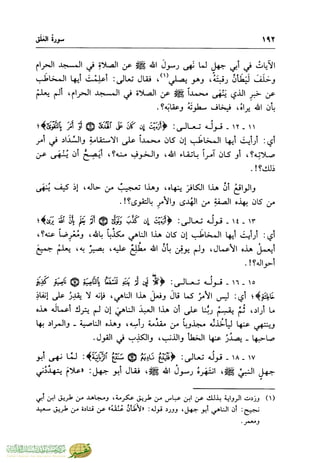 ١٩٢ سورة العَلَق
الآياتُ في أبي جهلٍ لما نهى رسولَ الله ﷺ عن الصلاةِ في المسجد الحرام
وحلَفَ لَيَطَأَنَّ رقبَتَهُ، وهو يصلي(١)، فقال تعالى: أعلِمتَ أيها المخاطَب
عن خبرِ الذي يَنْهَى محمداً ﷺ عن الصلاة في المسجد الحرام، ألم يعلَمْ
بأن الله يراهُ، فيخاف سطوتَهُ وعقابَه؟.
١١ - ١٢ - قوله تعالى: ﴿أَرَأَيْتَ إِن كَانَ عَلَى الْهُدَى ۝ أَوْ أَمَرَ بِالتَّقْوَى﴾؛
أي: أرأيتَ أيها المخاطَب إن كان محمداً على الاستقامةِ والسَّدادِ في أمر
صلاتِه؟، أو كان آمراً باتقاء الله، والخوفِ منه؟، أيَصِحُّ أن يُنْهَى عن
ذلك؟!.
والواقعُ أنَّ هذا الكافرَ ينهاه، وهذا تعجيبٌ من حاله، إذ كيف يُنْهَى
من كان بهذه الصفةِ من الهُدى والأمرِ بالتقوى؟!.
١٣ - ١٤ - قوله تعالى: ﴿أَرَأَيْتَ إِن كَذَّبَ وَتَوَلَّى ۝ أَلَمْ يَعْلَم بِأَنَّ اللَّهَ يَرَى﴾؛
أي: أرأيتَ أيها المخاطَب إن كان هذا الناهي مكذِّباً بالله، ومُعْرِضاً عنه؟،
أيعملُ هذه الأعمال، ولم يوقن بأن الله مطَّلِع عليه، بصيرٌ به، يعلَمُ جميعَ
أحوالِه؟!.
١٥ - ١٦ - قوله تعالى: ﴿كَلَّا لَئِن لَّمْ يَنتَهِ لَنَسْفَعًا بِالنَّاصِيَةِ ۝ نَاصِيَةٍ كَاذِبَةٍ
خَاطِئَةٍ﴾؛ أي: ليس الأمرُ كما قالَ وفعلَ هذا الناهي، فإنه لا يقدِرُ على إنفاذِ
ما أراد، ثُمَّ يقسمُ ربُّنا على أن هذا العبدَ الناهيَ إن لم يترك أعمالَه هذه
وينتهي عنها ليأخُذَنَّه مجذوباً من مقدَّمة رأسِه، وهذه الناصية - والمراد بها
صاحبها - يصدُرُ عنها الخطأُ والذنب، والكذِب في القول.
١٧ - ١٨ - قوله تعالى: ﴿فَلْيَدْعُ نَادِيَهُ ۝ سَنَدْعُ الزَّبَانِيَةَ﴾؛ لمَّا نهى أبو
جهلٍ النبيَّ ﷺ، انتَهَرَهُ رسولُ الله ﷺ، فقال أبو جهل: «علامَ يتهدَّدُني
(١) وردَت الرواية بذلك عن ابن عباس من طريق عكرمة، ومجاهد من طريق ابن أبي
نجيح: أن الناهي أبو جهل، وورد قوله: «لأطَأَنَّ عُنُقَهُ» عن قتادة من طريق سعيد
ومعمر.